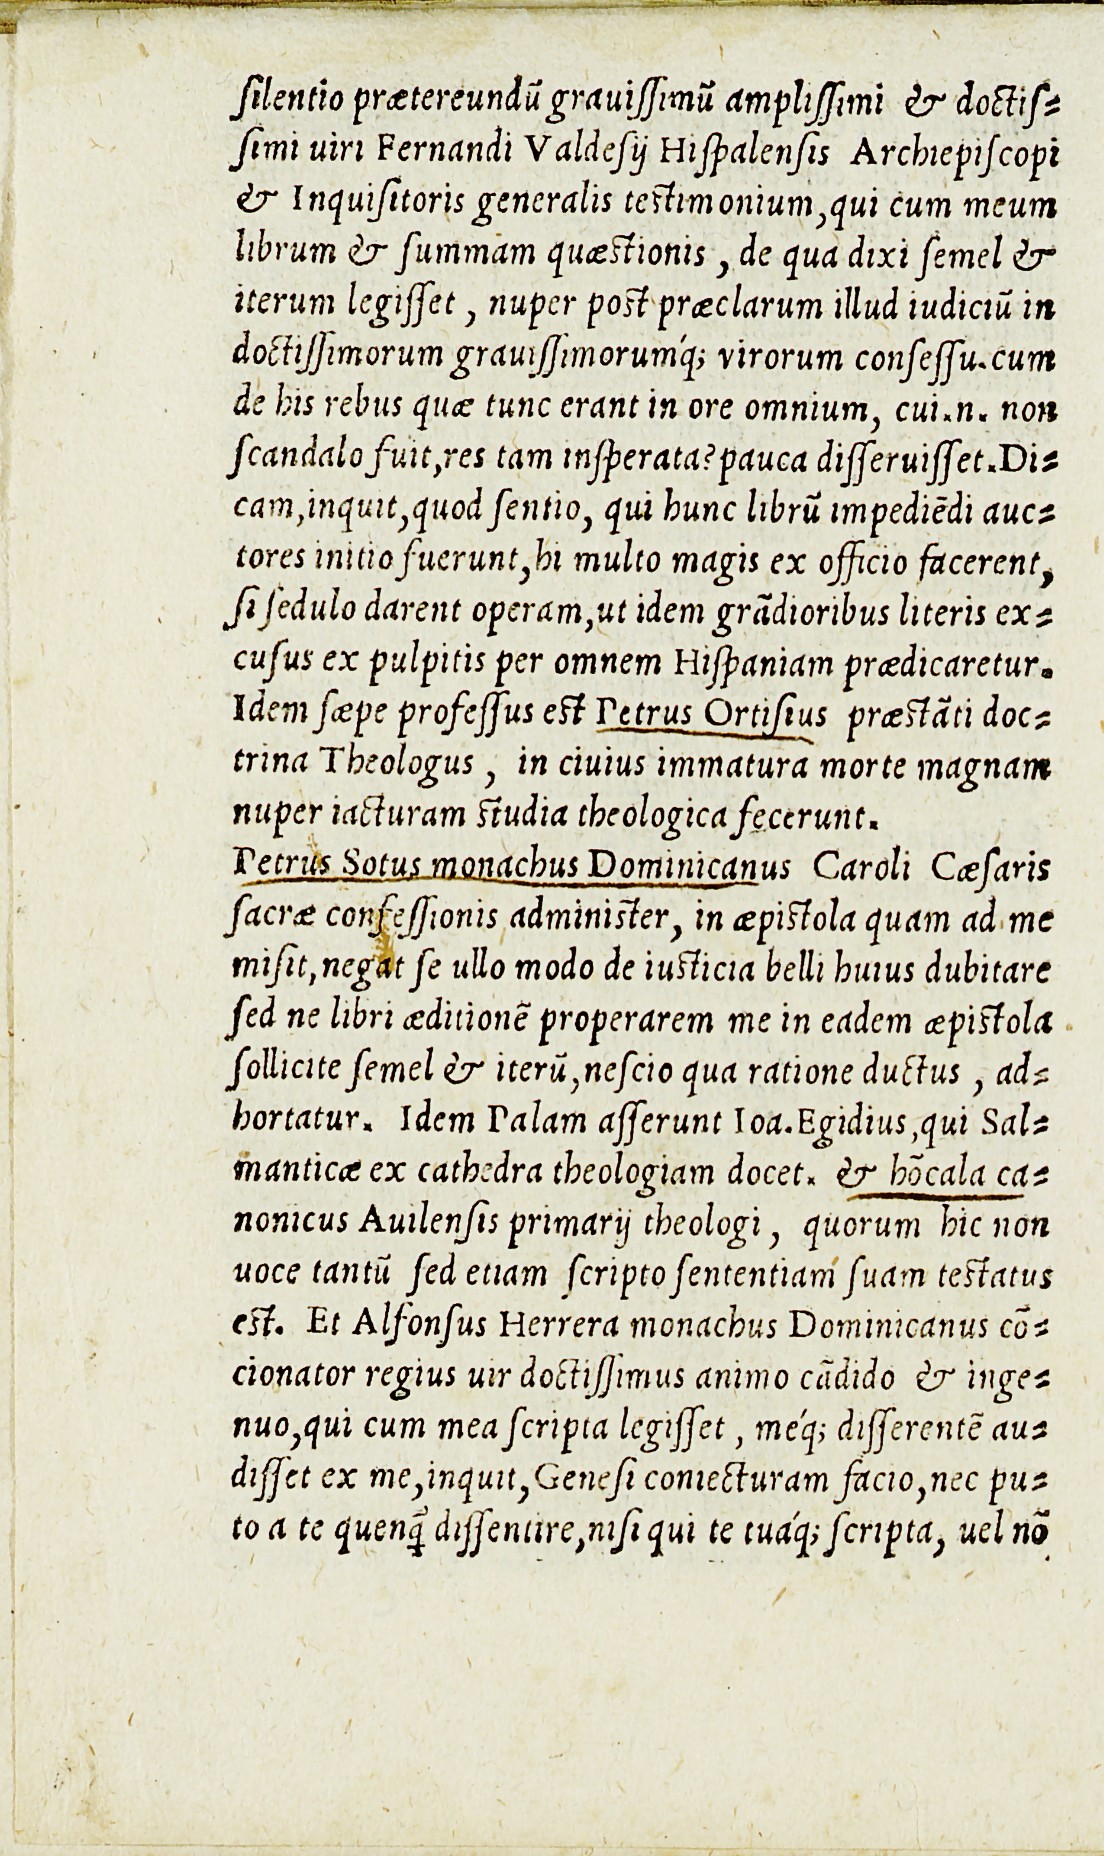 ſilentio prætereundũ grauiſſimũ ampliſſimi & doctiſ⸗
ſimi uiri Fernandi Valdeſij Hiſpalenſis Archiepiſcopi
& Inquiſitoris generalis teſtimonium, qui cum meum
librum & ſummam quæſtionis , de qua dixi ſemel &
iterum legiſſet , nuper poſt præclarum illud iudiciũ in
doctiſſimorum grauiſſimorumq́; virorum conſeſſu. cum
de his rebus quæ tunc erant in ore omnium, cui.n. non
ſcandalo fuit, res tam inſperata? pauca diſſeruiſſet. Di⸗
cam, inquit, quod ſentio, qui hunc librũ impediẽdi auc⸗
tores initio fuerunt, hi multo magis ex officio facerent,
ſi ſedulo darent operam, ut idem grãdioribus literis ex⸗
cuſus ex pulpitis per omnem Hiſpaniam prædicaretur.
Idem ſæpe profeſſus eſt Petrus Ortiſius præſtãti doc⸗
trina Theologus , in ciuius immatura morte magnam
nuper iacturam ſtudia theologica fecerunt.
Petrus Sotus monachus Dominicanus Caroli Cæſaris
ſacræ confeſſionis adminiſter, in æpiſtola quam ad me
miſit, negat ſe ullo modo de iuſticia belli huius dubitare
ſed ne libri æditionẽ properarem me in eadem æpiſtola
ſollicite ſemel & iterũ, neſcio qua ratione ductus , ad⸗
hortatur. Idem Palam aſſerunt Ioa. Egidius, qui Sal⸗
manticæ ex cathedra theologiam docet. & hõcala ca⸗
nonicus Auilenſis primarij theologi , quorum hic non
uoce tantũ ſed etiam ſcripto ſententiam ſuam teſtatus
eſt. Et Alfonſus Herrera monachus Dominicanus cõ⸗
cionator regius uir doctiſſimus animo cãdido & inge⸗
nuo, qui cum mea ſcripta legiſſet , meq́; diſſerentẽ au⸗
diſſet ex me, inquit, Geneſi coniecturam facio, nec pu⸗
to a te quenq̃ diſſentire, niſi qui te tuaq́; ſcripta, uel nõ